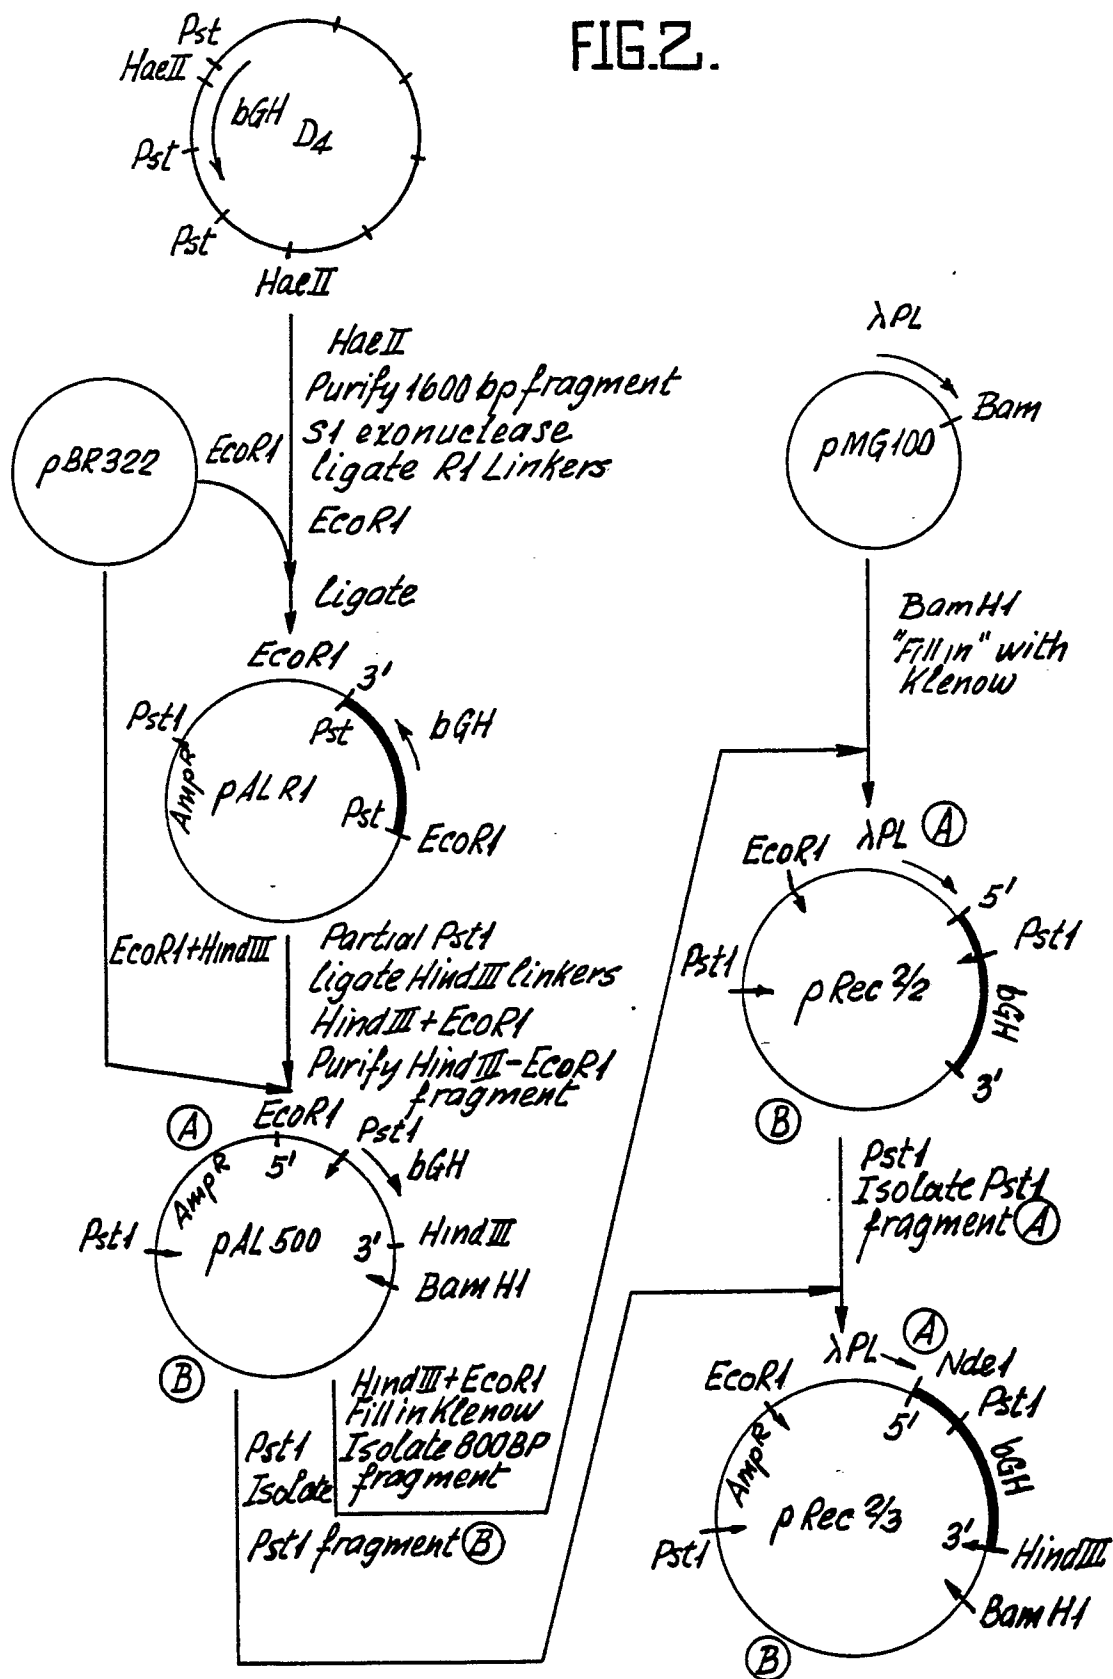 FIG.2.
Pst
HaeII
bGH
D4
Pst
Pst
HaeII
HaeII
Purify 1600 bp fragment
S1 exonuclease
ligate R1 Linkers
EcoR1
pBR322
EcoR1
ligate
λPL
Bam
pMG100
BamH1
"Fill in" with
Klenow
EcoR1
3'
Pst1
Pst
bGH
AmpR
pALR1
Pst
EcoR1
EcoR1+HindIII
Partial Pst1
ligate HindIII linkers
HindIII+EcoR1
Purify HindIII-EcoR1
fragment
λPL
A
EcoR1
5'
Pst1
Pst1
pRec 2/2
bGH
3'
B
Pst1
Isolate Pst1
fragment A
A
EcoR1
5'
Pst1
bGH
AmpR
Pst1
pAL500
3'
HindIII
BamH1
B
HindIII+EcoR1
Fill in Klenow
Isolate 800BP
fragment
Pst1
Isolate
Pst1 fragment B
λPL
A
Nde1
EcoR1
5'
Pst1
AmpR
bGH
pRec 2/3
Pst1
3'
HindIII
BamH1
B